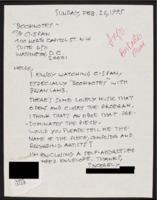 SUNDAY, FEB. 26, 1995
"BOOKNOTES"
C-SPAN
400 NORTH CAPITOL ST. N.W.
SUITE 650
WASHINGTON D.C.
20001
HELLO,
I ENJOY WATCHING C-SPAN,
ESPECIALLY "BOOKNOTES" WITH
BRIAN LAMB.
THERE'S SOME LOVELY MUSIC THAT
OPEN AND CLOSES THE PROGRAM,
I THINK THAN AN OBOE THAT PRE-
DOMINATES THE PIECE.
WOULD YOU PLEASE TELL ME THE
NAME OF THE PIECE, COMPOSER AND
RECORDING ARTIST?
I'M ENCLOSING A SELF-ADDRESSED
ENVELOPE. THANKS,
SINCERELY